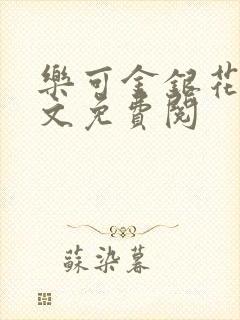 樂可金銀花
文免費閱
蘇染暮